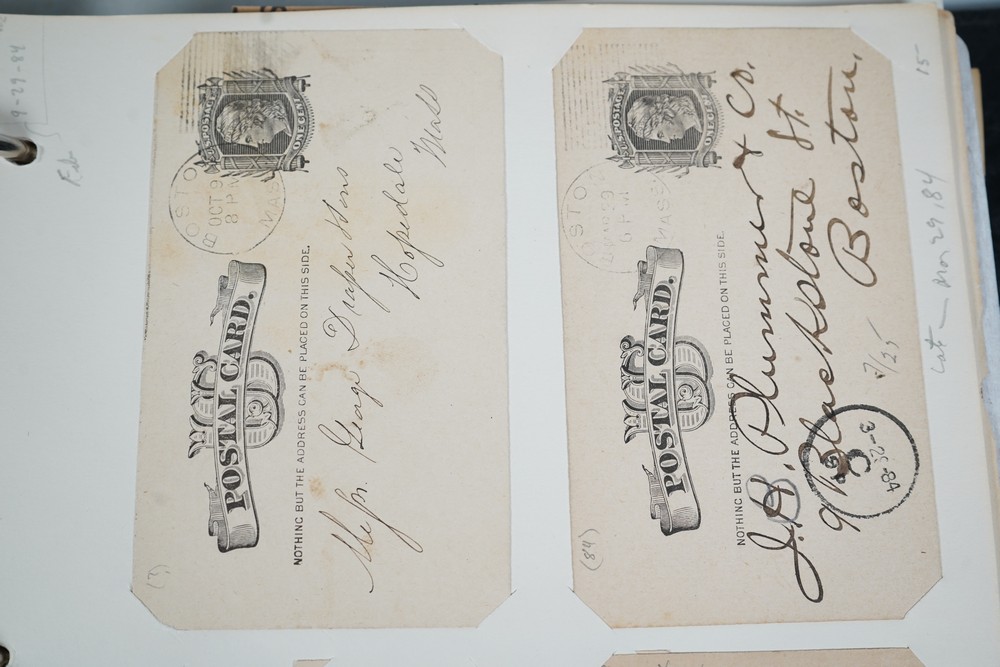 9-29-84
U.S. POSTAGE
ONE CENT
BOSTO
OCT 9
8 PM
MASS
U.S.
POSTAL CARD.
NOTHING BUT THE ADDRESS CAN BE PLACED ON THIS SIDE.
Messrs. George Draper & Sons
Hopedale
Mass
(?)
U.S. POSTAGE
ONE CENT
OSTO
29
6 PM
MASS
U.S.
POSTAL CARD.
NOTHING BUT THE ADDRESS CAN BE PLACED ON THIS SIDE.
J.H. Plummer & Co.
9 Blackstone St.
Boston.
(84)
15